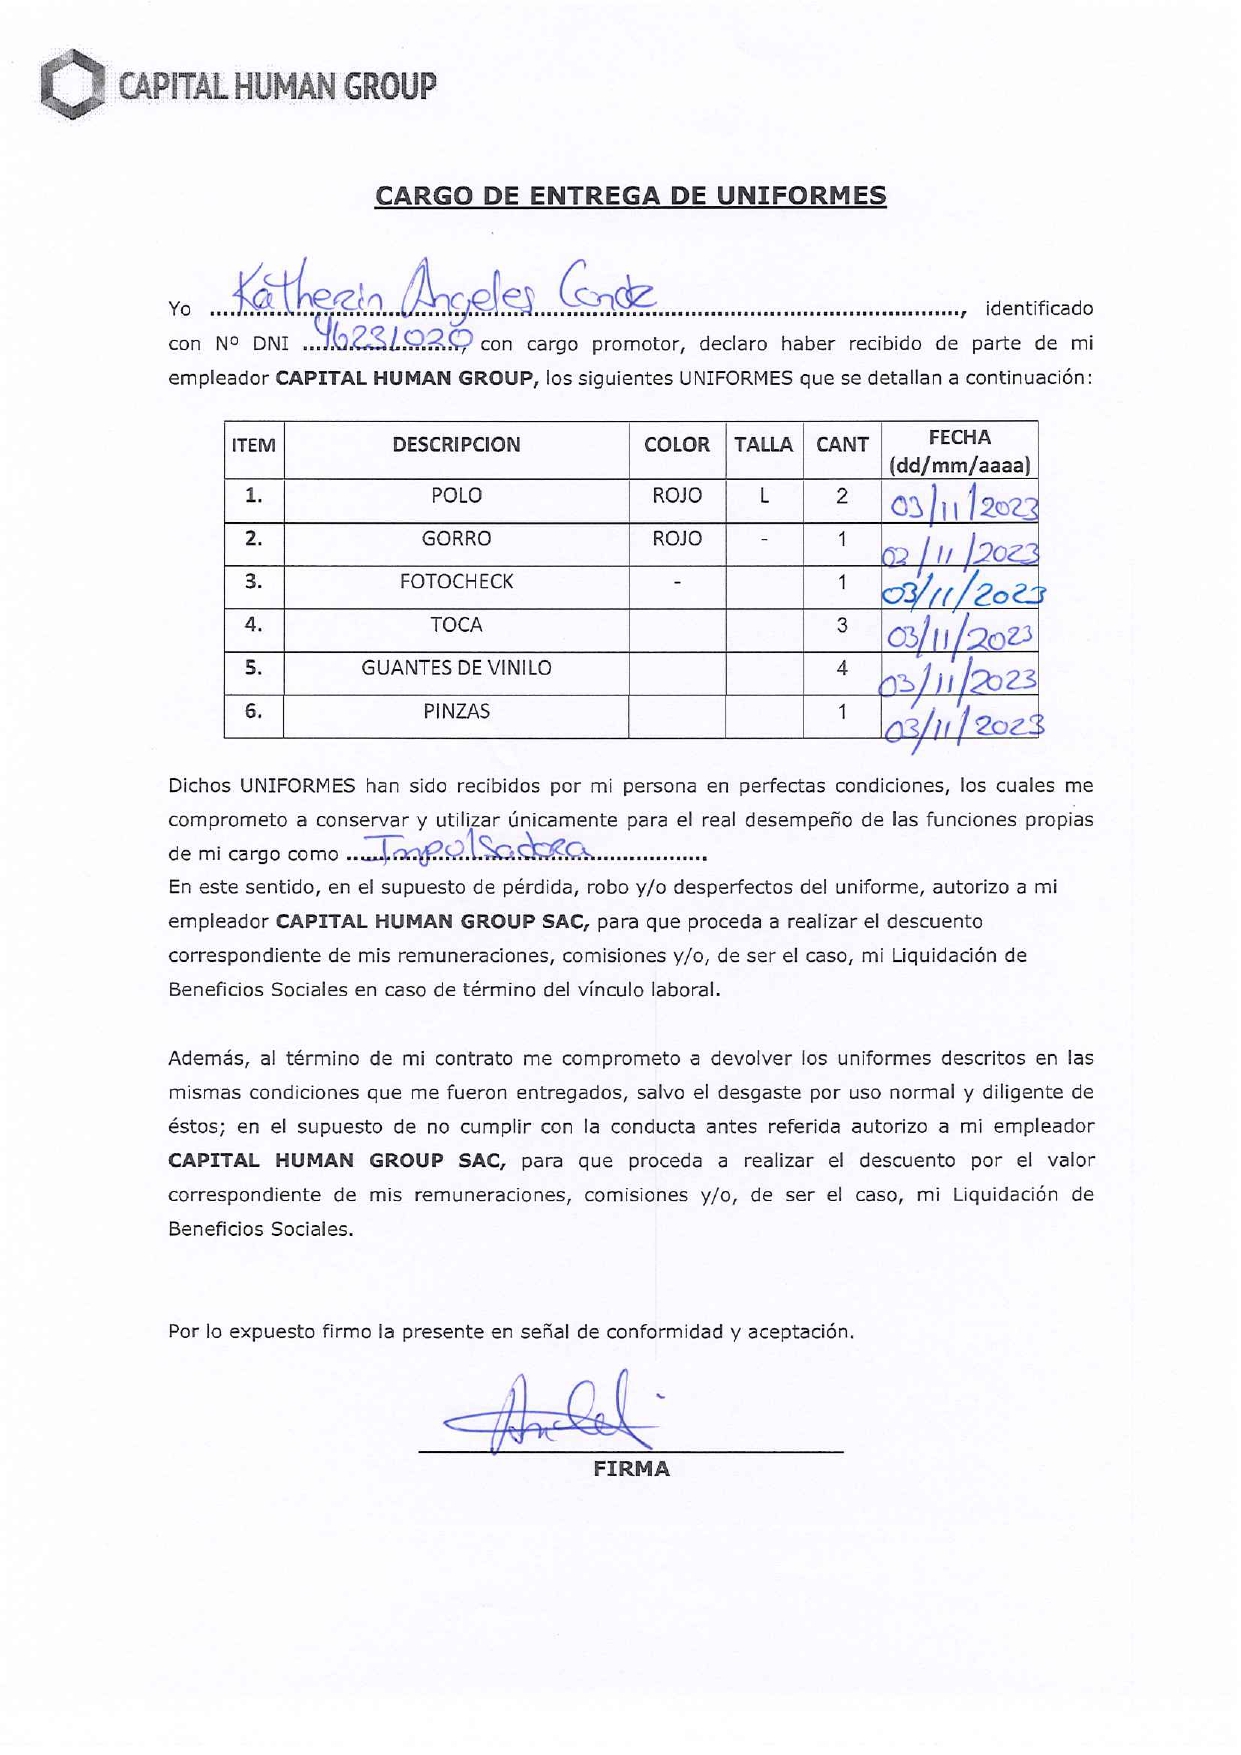 CAPITAL HUMAN GROUP
CARGO DE ENTREGA DE UNIFORMES
Yo Katherin Angeles Conde, identificado
con Nº DNI 46231020, con cargo promotor, declaro haber recibido de parte de mi
empleador CAPITAL HUMAN GROUP, los siguientes UNIFORMES que se detallan a continuación:
ITEM DESCRIPCION COLOR TALLA CANT FECHA (dd/mm/aaaa)
1. POLO ROJO L 2 03/11/2023
2. GORRO ROJO - 1 02/11/2023
3. FOTOCHECK - 1 03/11/2023
4. TOCA 3 03/11/2023
5. GUANTES DE VINILO 4 03/11/2023
6. PINZAS 1 03/11/2023
Dichos UNIFORMES han sido recibidos por mi persona en perfectas condiciones, los cuales me
comprometo a conservar y utilizar únicamente para el real desempeño de las funciones propias
de mi cargo como Impulsadora
En este sentido, en el supuesto de pérdida, robo y/o desperfectos del uniforme, autorizo a mi
empleador CAPITAL HUMAN GROUP SAC, para que proceda a realizar el descuento
correspondiente de mis remuneraciones, comisiones y/o, de ser el caso, mi Liquidación de
Beneficios Sociales en caso de término del vínculo laboral.
Además, al término de mi contrato me comprometo a devolver los uniformes descritos en las
mismas condiciones que me fueron entregados, salvo el desgaste por uso normal y diligente de
éstos; en el supuesto de no cumplir con la conducta antes referida autorizo a mi empleador
CAPITAL HUMAN GROUP SAC, para que proceda a realizar el descuento por el valor
correspondiente de mis remuneraciones, comisiones y/o, de ser el caso, mi Liquidación de
Beneficios Sociales.
Por lo expuesto firmo la presente en señal de conformidad y aceptación.
FIRMA